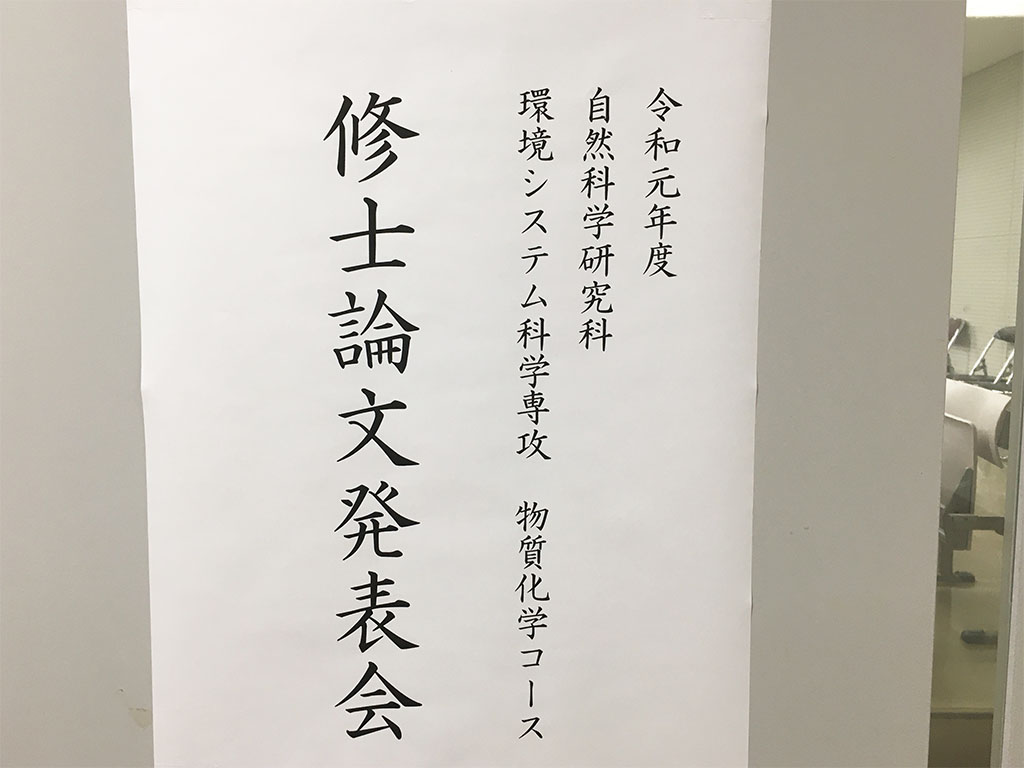 令和元年度
自然科学研究科
環境システム科学専攻　物質化学コース
修士論文発表会